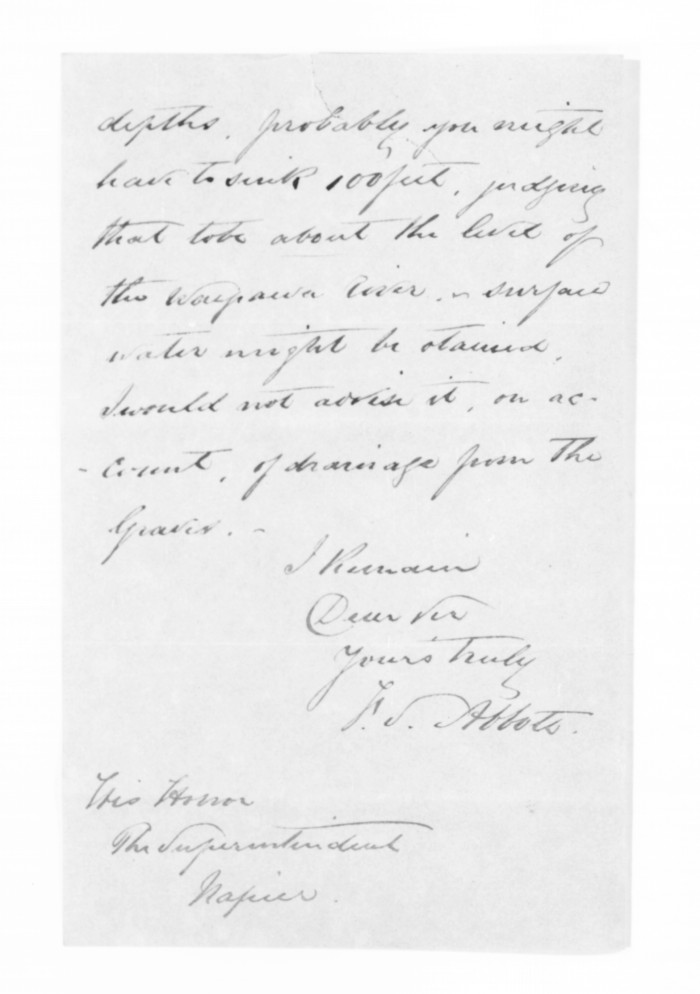 depths, probably you might
have to sink 100 feet, judging
that to be about the level of
the Waipawa River. - surface
water might be otained,
I would not advise it, on ac-
- count, of drainage from the
Graves. -
I Remain
Dear Sir
Yours truly
F. S. Abbott.
His Honor
The Superintendent
Napier.